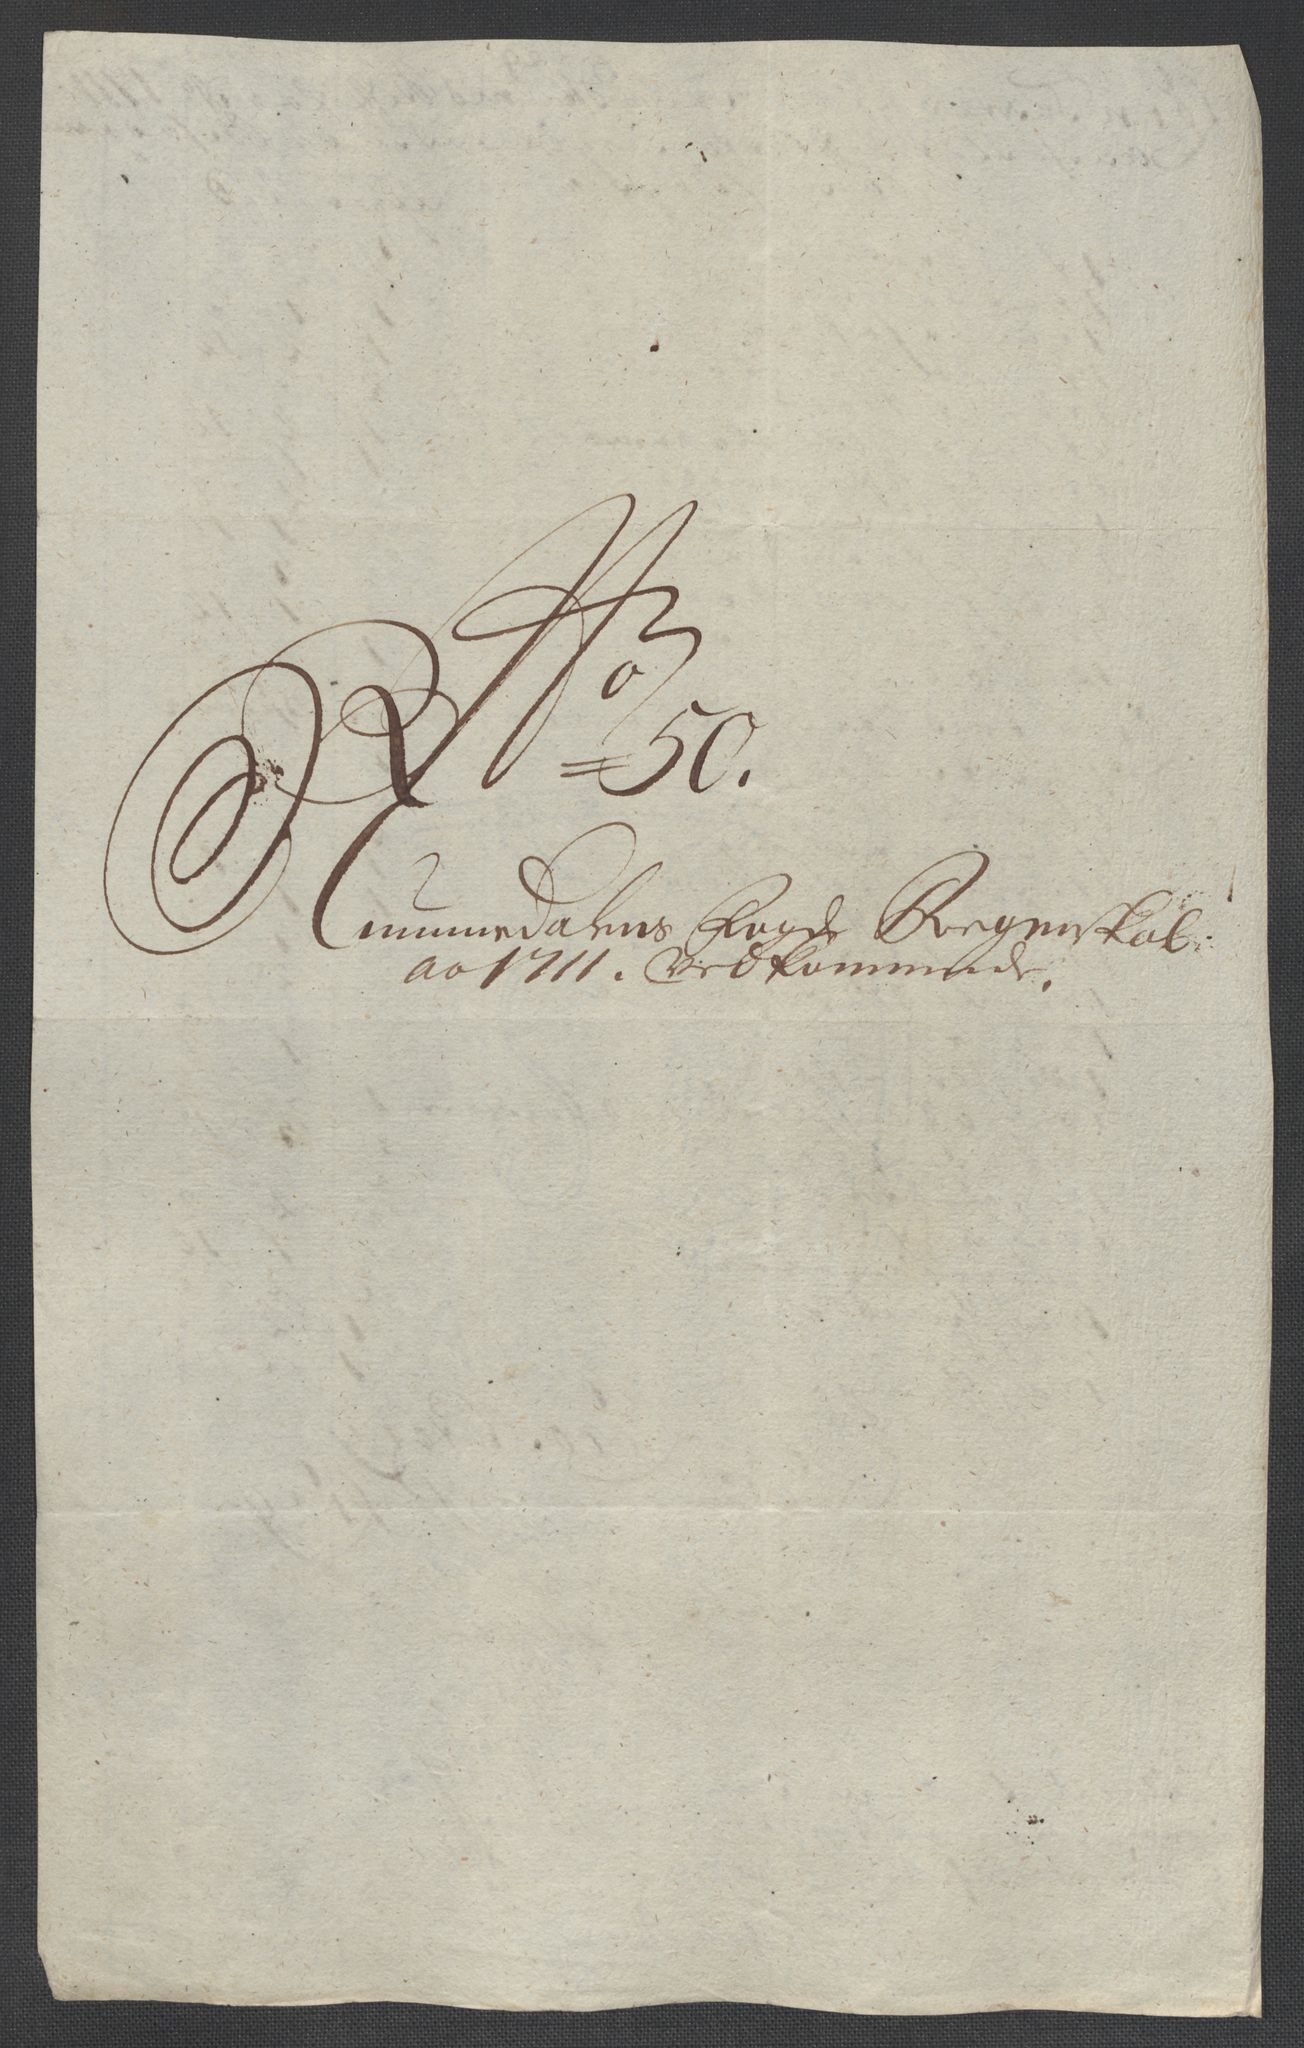 No
50.
Nummedalens Fogde Regenskab:
ao 1711. Vedkommende.